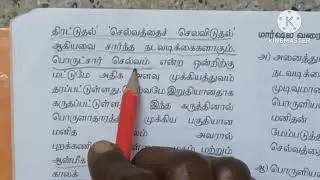 திரட்டுதல் செல்வத்தைச் செலவிடுதல்
ஆகியவை சார்ந்த நடவடிக்கைகளாகும்.
பொருட்சார் செல்வம் என்ற ஒன்றிற்கு
மட்டுமே அதிக அளவு முக்கியத்துவம்
தரப்பட்டுள்ளது. இறுதியானதாக
கருதப்பட்டுள்ளது இந்த கருத்தினால்
பொருளாதாரத் முக்கிய பகுதியான
மனித அவரால்
புறக்கணி மற்றும்
ஆன்மீக
காலக்
மார்ஷல் வரை
அ) அனைத்து
நடவடிக்
உட்பட்ட
மனிதன்
மேம்படுத்
செல்வத்தை
ஆ) பொருளிய
KINEMASTER